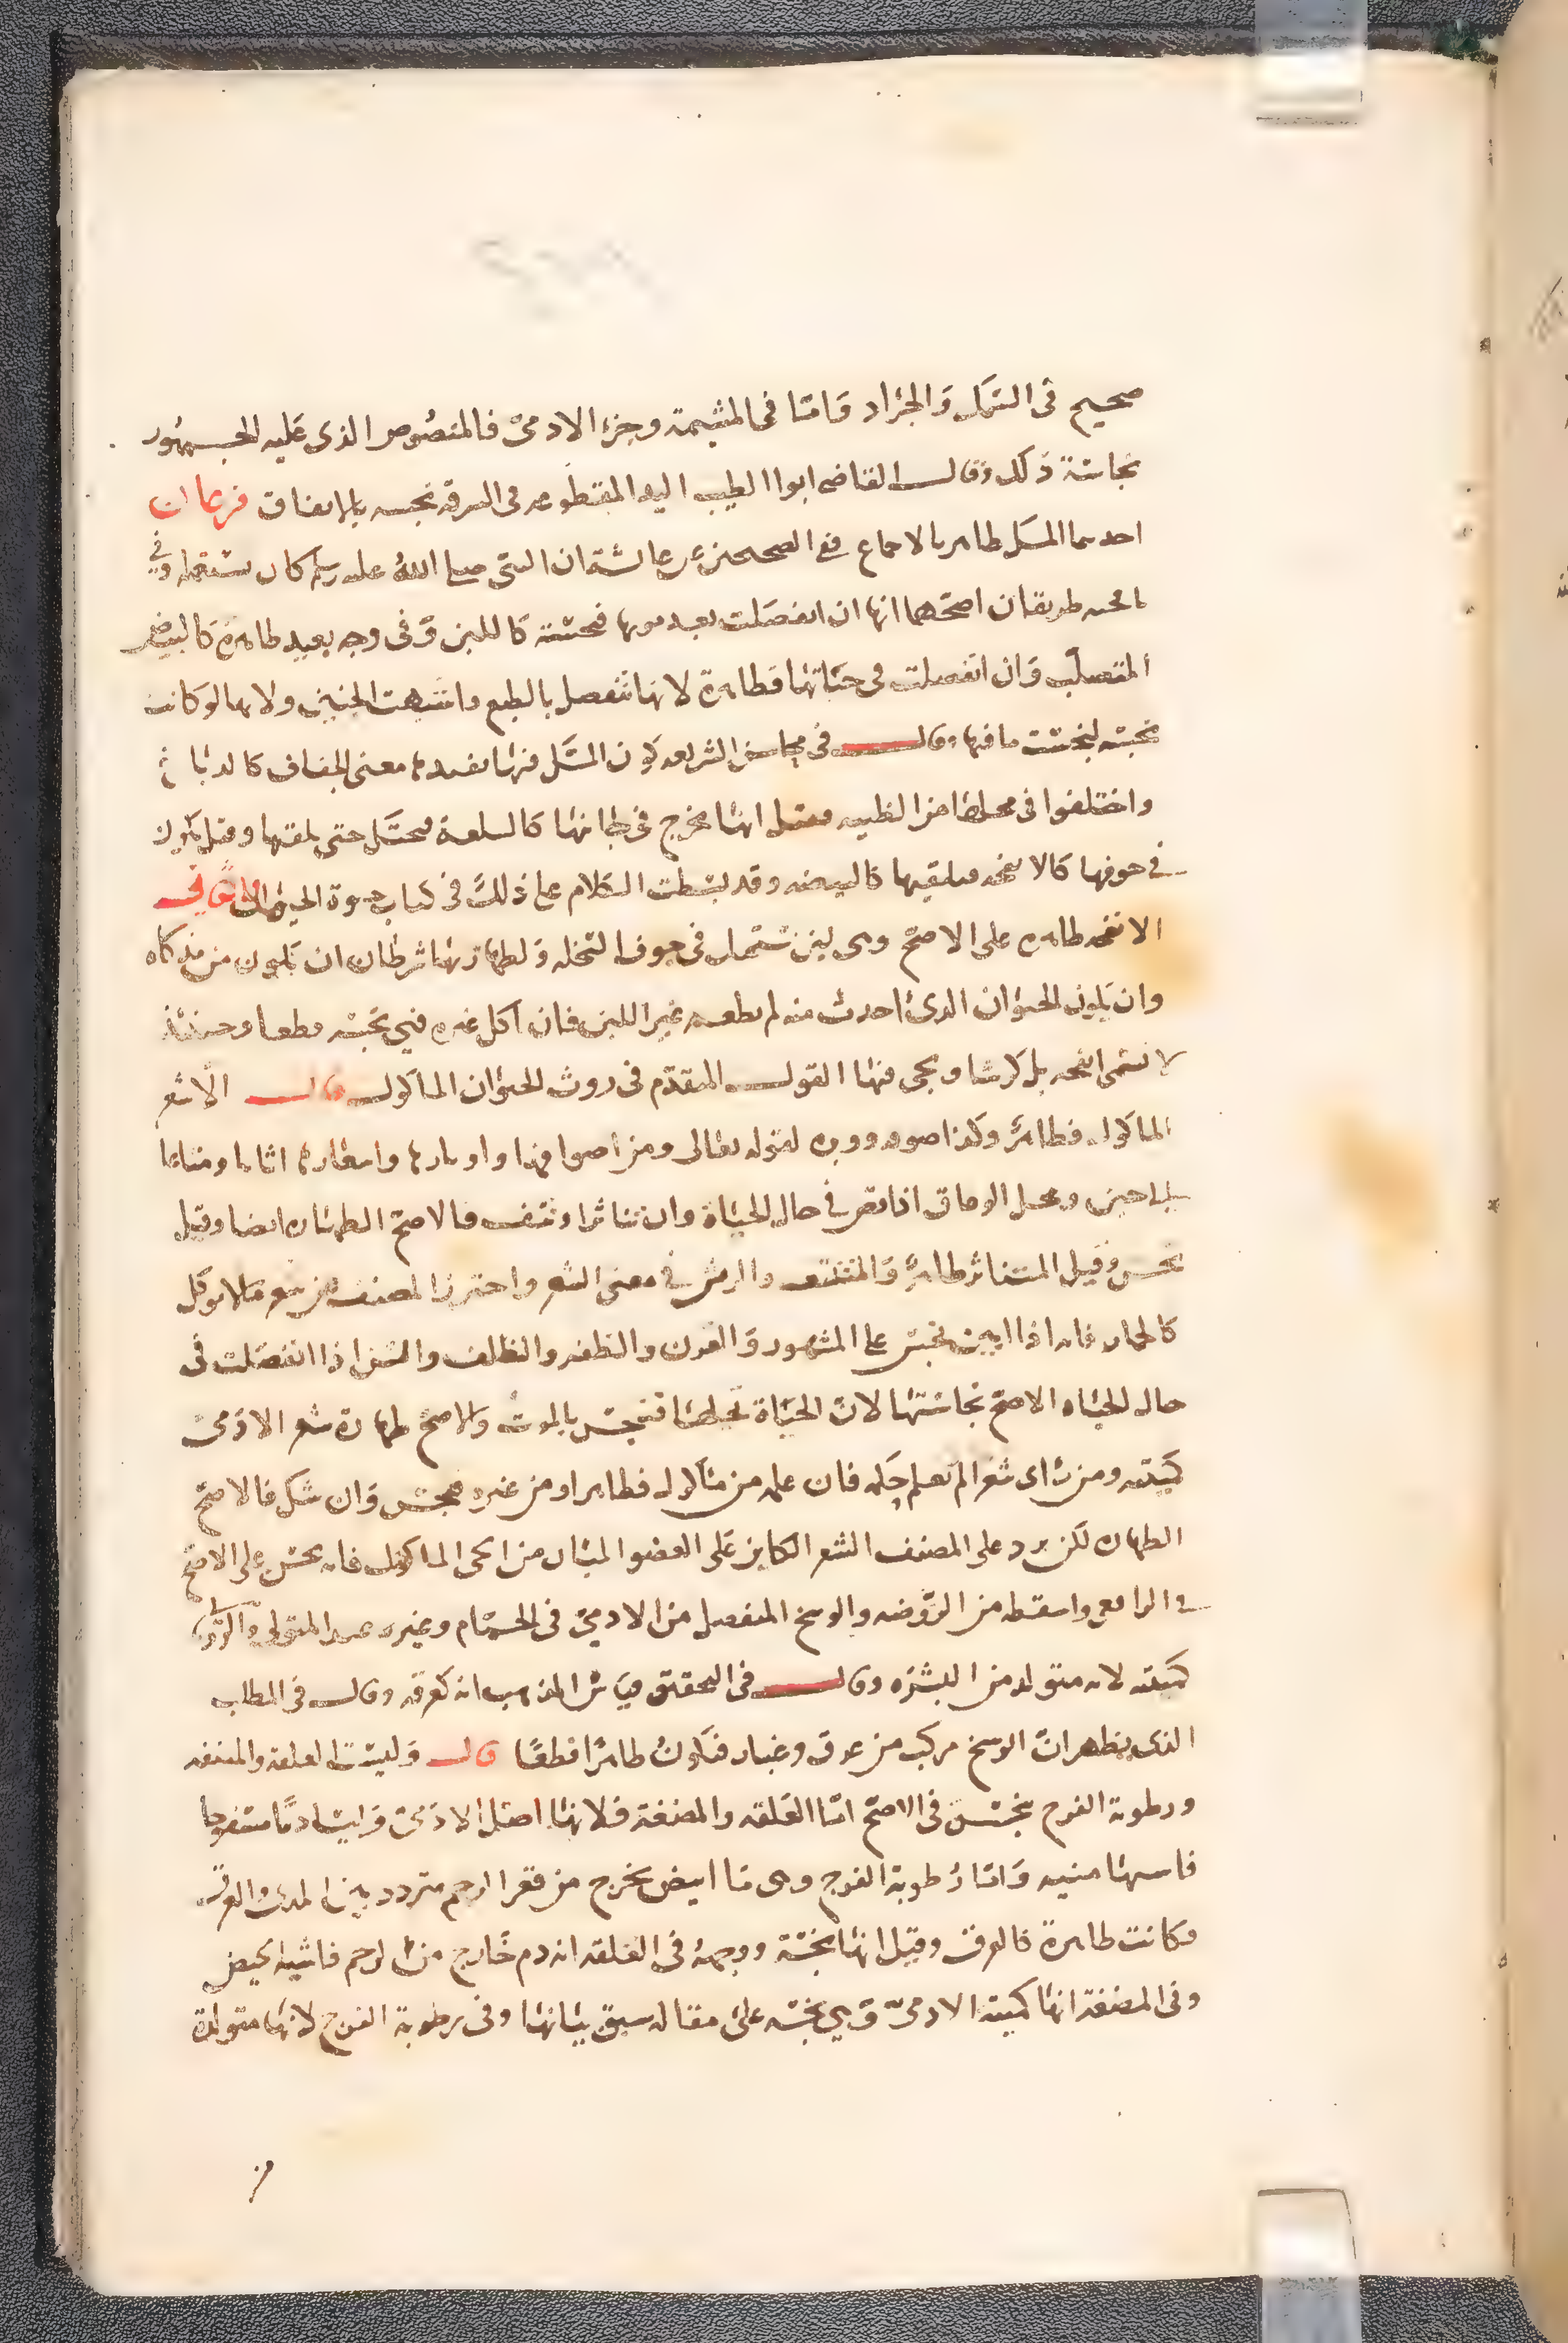 صحيح في السمك والجراد واما في المشيمة وجزء الادمي فالمنصوص الذي عليه الجمهور
نجاسة ذلك وقال القاضي ابوا الطيب اليد المقطوعه في السرقه نجسه بالاتفاق فرعان
احدهما المسك طاهر بالاجماع ففي الصحيحين عن عائشة ان النبي صلى الله عليه وسلم كان يستعمله وفي
فاجيه طريقان اصحهما انها ان انفصلت بعد موتها فنجسة كاللبن وفي وجه بعيد طاهرة كالبيض
المتصلب وان انفصلت في حياتها فطاهرة لانها تنفصل بالطبع واشبهت الجنين ولانها لو كانت
نجسه لنجست ما فيها وقال في محاسن الشريعه لان المسك فيها معنى الجفاف كالدباغ
واختلفوا في محلها من الظبيه فقيل انها تخرج في جانبها كالسلعة فتحتك حتى يلقيها وقيل يكون
في جوفها كالانفحه فيلقيها كالبيضه وقد بسطت الكلام على ذلك في كتاب حيوة الحيوان الثاني
الانفحه طاهره على الاصح وهي لبن يستحيل في جوف السخله ولطهارتها شرطان ان يكون من مذكاه
وان يكون الحيوان الذي اخدت منه لم يطعم غير اللبن فان اكل غيره فهي نجسه قطعا وحينئذ
لا تسمى انفحه بل كرشا ويجي فيها القول المتقدم في روث الحيوان الماكول قال الا شعر
الماكول فطاهر وكذا صوفه ووبره لقوله تعالى ومن اصوافها واوبارها واشعارها اثاثا ومتاعا
الى حين ومحل الوفاق اذا قص في حال الحياة وان تناثر او نتف فالاصح الطهاره ايضا وقيل
نجس وقيل المتناثر طاهر والمنتتف والريش في معنى الشعر واحترز المصنف من شعر مالا يوكل
كالحمار فانه اذا ابين نجس على المشهور والقرن والظفر والظلف والسن اذا انفصلت في
حال الحياه الاصح نجاستها لان الحياة تحلها فتنجس بالموت والاصح طهارة شعر الادمي
كميتته ومن راى شعرا لم يعلم حاله فان علمه من ماكول فطاهر او من غيره فنجس وان شك فالاصح
الطهاره لكن يرد على المصنف الشعر الكاين على العضو المبان من الحي الماكول فانه نجس على الاصح
في الرافعي واسقطه من الروضه والوسخ المنفصل من الادمي في الحمام وغيره عند المتولي والروياني
كميتته لانه متولد من البشره وقال في التحقيق قياس المذهب انه كعرقه وقال في المطلب
الذي يظهر ان الوسخ مركب من عرق وغبار فيكون طاهرا قطعا قال وليست العلقه والمضغه
ورطوبة الفرج بنجس في الاصح اما العلقه والمضغة فلانها اصل الادمي وليسا دما مسفوحا
فاشبها منيه واما رطوبة الفرج وهي ما ابيض يخرج من قعر الرحم متردد بين المذي والعرق
فكانت طاهرة كالعرق وقيل انها نجسة ووجهه في العلقه انه دم خارج من الرحم فاشبه الحيض
وفي المضغة انها كميتة الادمي وهي نجسه على مقاله سبق بيانها وفي رطوبة الفرج لانها متولدة
من